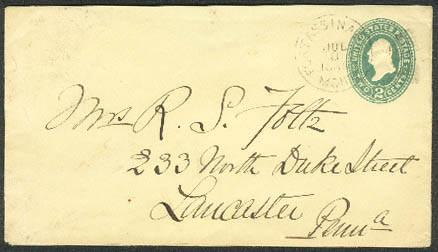 FT. ASSINA
JUL
MON
UNITED STATES POSTAGE
TWO 2 CENTS
Mrs R. S. Foltz
233 North Duke Street
Lancaster Penna